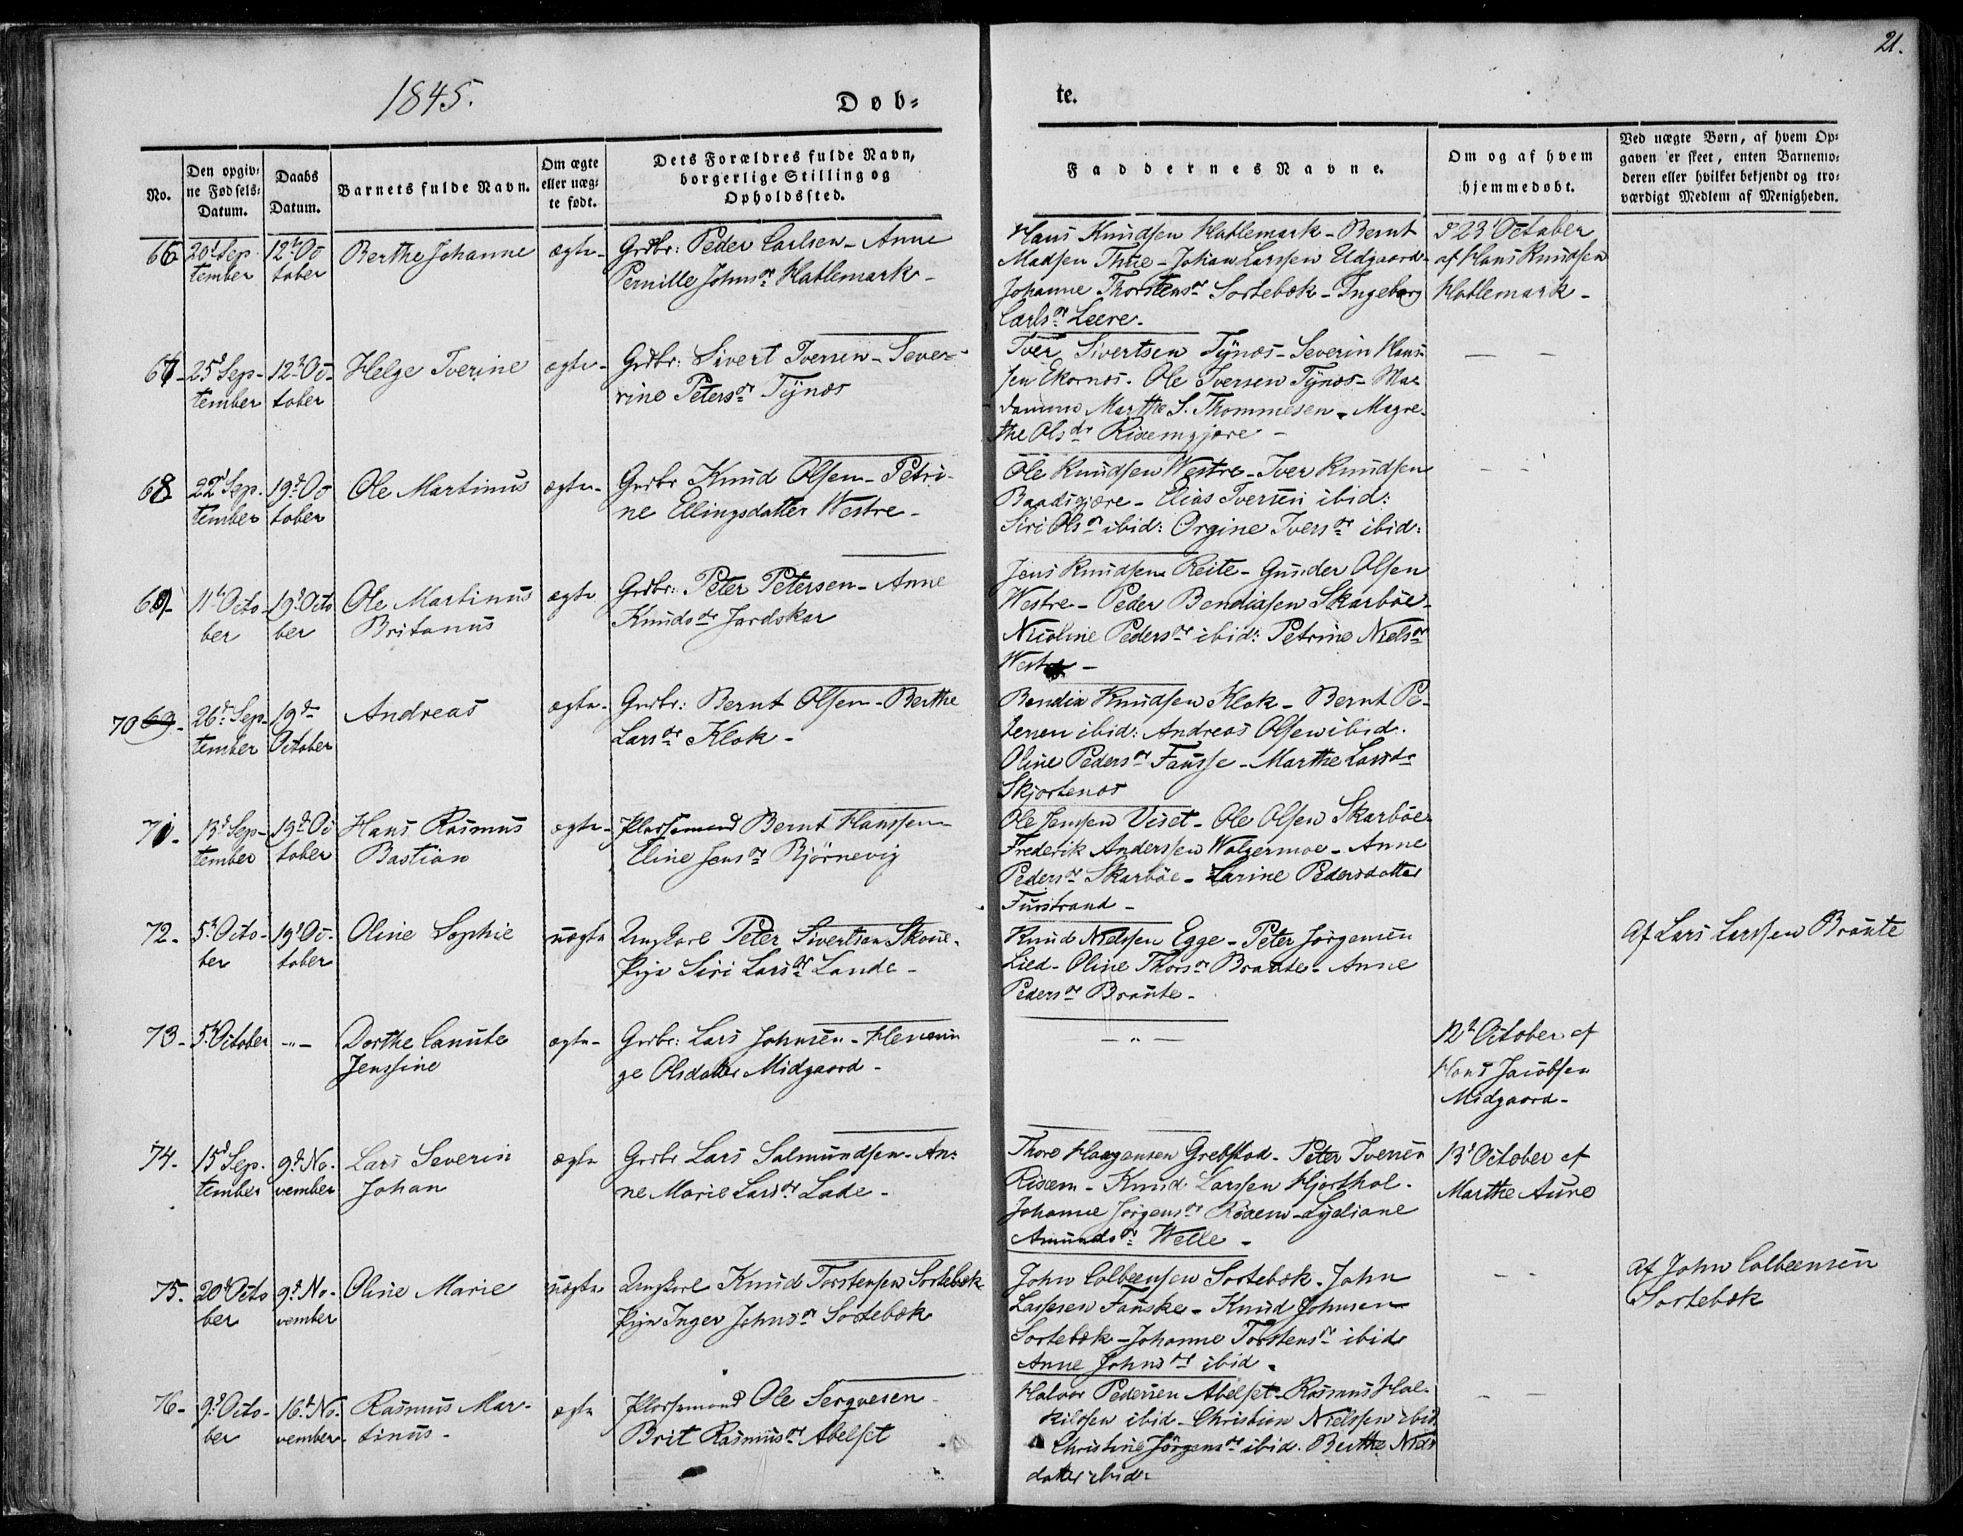 21.
1845.
Døb-
te.
No.
Den opgiv-
ne Fødsels-
Datum.
Daabs
Datum.
Barnets fulde Navn.
Om ægte
eller uæg-
te født.
Dets Forældres fulde Navn,
borgerlige Stilling og
Opholdssted.
Faddernes Navne.
Om og af hvem
hjemmedøbt.
Ved uægte Børn, af hvem Op-
gaven er skeet, enten Barnemo-
deren eller hvilket bekjendt og tro-
værdigt Medlem af Menigheden.
66
20d Sep-
tember
12t Oc
tober
Berthe Johanne
ægte
Grdbr: Peder Carlsen - Anne
Pernille Johnsdr Hatlemark -
Hans Knudsen Hatlemark - Bernt
Madsen Thue - Johan Larssen Udgaard
Johanne Thorstensdr Sortebæk - Ingeborg
Carlsdr Leere -
d 23 October
af Hans Knudsen
Hatlemark -
67 -
25d Sep-
tember
12t Oc-
tober
Helge Iverine
ægte -
Grdbr: Sivert Iversen - Seve-
rine Petersdr Tynæs
Iver Sivertsen Tynæs - Severin Hans-
sen Ekornæs. Ole Iversen Tynæs - Ma-
damme Marthe S. Thommesen - Magre-
the Olsdr Rixemgjære -
— —
68
22d Sep-
tember
19d Oc
tober
Ole Martinus
ægte -
Grdbr Knud Olsen - Petri-
ne Ellingsdatter Westre -
Ole Knudsen Westre - Iver Knudsen
Baadsgjære - Elias Iversen ibid:
Siri Olsdr ibid: Orgine Iversdr ibid:
- -
69 -
11t Octo
ber
19d Octo
ber
Ole Martinus
Britanus
ægte
Grdbr: Peter Petersen - Anne
Knudsdr Jardskar
Jens Knudsen Reite - Gunder Olsen
Westre - Peder Bendixsen Skarbøe -
Nicoline Pedersdr ibid: Petrine Nielsdr
Westre -
70 69 -
26d Sep-
tember
19d
October
Andreas
ægte -
Grdbr: Bernt Olsen - Berthe
Larsdr Klok -
Bendix Knudsen Klok - Bernt Pe-
tersen ibid: Andreas Olsen ibid.
Oline Pedersdr Fausse - Marthe Larsdr
Skjortenæs
71 -
13d Sep-
tember
19d Oc
tober
Hans Rasmus
Bastian
ægte -
Pladsemand Bernt Hanssen -
Eline Jensdr Bjørnevig
Ole Jenssen Viset - Ole Olsen Skarbøe
Frederik Anderssen Walgermoe - Anne
Pedersdr Skarbøe - Larine Pedersdatter
Furstrand -
72 -
5t Octo-
ber
19d Oc-
tober
Oline Sophie
uægte
Ungkarl Peter Sivertsen Skoue -
Pige Siri Larsdr Lande -
Knud Nielsen Egge - Peter Jørgensen
Lied - Oline Thorsdr Braute - Anne
Pedersdr Braute -
Af Lars Larssen Braute
73 -
5t October
- " -
Dorthe Canute
Jenssine
ægte -
Grdbr: Lars Johnsen -
Olsdatter Midgaard -
— " —
12t October af
Hans Jacobsen
Midgaard -
74 -
15d Sep-
tember
9d No-
vember
Lars Severin
Johan
ægte
Grdbr Lars Salmundsen - An-
ne Marie Larsdr Lade -
Thore Haagensen Grebstad - Peter Iversen
Rixem - Knud Larssen Hjorthol -
Johanne Jørgensdr Rixem - Lydiane
Amundsdr Welle -
13d October af
Marthe Aure
75 -
20d Octo
ber
9d No-
vember
Oline Marie
uægte
Ungkarl Knud Torstensen Sortebæk
Pige Inger Johnsdr Sortebæk
John Colbeensen Sortebæk - John
Lassesen Fauske - Knud Johnsen
Sortebæk - Johanne Torstensdr ibid
Anne Johnsdr ibid -
- -
Af John Colbeensen
Sortebæk
76 -
9d Octo-
ber
16t No-
vember -
Rasmus Mar-
tinus -
ægte
Pladsemand Ole Serqvesen
Brit Rasmusdr Abelset
Halvor Pedersen Abelset - Rasmus Hal-
kilssen ibid - Christian Nielssen ibid
Christine Jørgensdr ibid. Berthe Niels
datter ibid -
- -